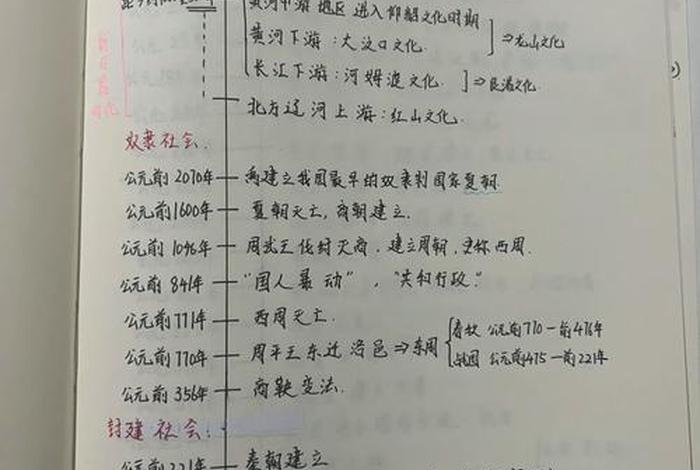 黄河中游地区进入仰韶文化时期
黄河下游:大汶口文化 ⇒龙山文化
长江下游:河姆渡文化. ⇒良渚文化.
北方辽河上游:红山文化.
奴隶社会.
公元前2070年 禹建立我国最早的奴隶制国家夏朝
公元前1600年 夏朝灭亡,商朝建立.
公元前1046年 周武王伐纣灭商,建立周朝,史称西周.
公元前841年 “国人暴动”,“共和行政.”
公元前771年 西周灭亡.
公元前770年 周平王东迁洛邑⇒东周 春秋 公元前770—前476年
战国 公元前475—前221年
公元前356年 商鞅变法.
封建社会:
公元前221年 秦朝建立